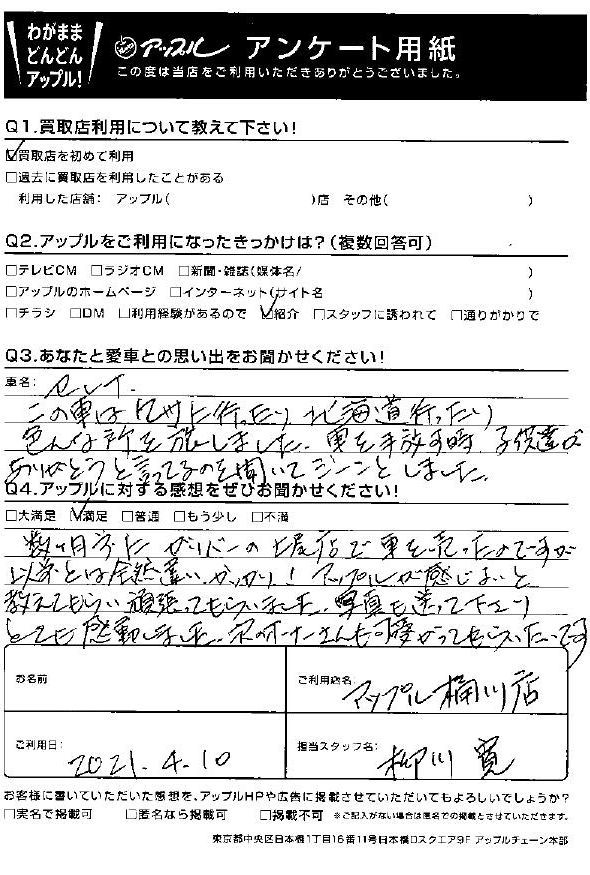 わがまま
どんどん
アップル!
アップル アンケート用紙
この度は当店をご利用いただきありがとうございました。
Q1.買取店利用について教えて下さい!
☑買取店を初めて利用
□過去に買取店を利用したことがある
利用した店舗: アップル( )店 その他( )
Q2.アップルをご利用になったきっかけは?(複数回答可)
□テレビCM □ラジオCM □新聞・雑誌(媒体名/ )
□アップルのホームページ □インターネット(サイト名 )
□チラシ □DM □利用経験があるので ☑紹介 □スタッフに誘われて □通りがかりで
Q3.あなたと愛車との思い出をお聞かせください!
車名: セレナ.
この車は九州に行ったり 北海道行ったり
色んな所を旅しました. 車を手放す時 子供達が
ありがとうと言ってるのを聞いてジーンとしました.
Q4.アップルに対する感想をぜひお聞かせください!
□大満足 ☑満足 □普通 □もう少し □不満
数ヶ月前に ガリバーの上尾店で 車を売ったのですが
以前とは全然違い がっかり! アップルが感じよいと
教えてもらい 頑張ってもらいました. 写真も送って下さり
とても感動しました. 次のオーナーさんも可愛がってもらいたいです
お名前
ご利用店名: アップル桶川店
ご利用日: 2021.4.10
担当スタッフ名: 柳川 寛
お客様に書いていただいた感想を、アップルHPや広告に掲載させていただいてもよろしいでしょうか?
□実名で掲載可 □匿名なら掲載可 □掲載不可 ※ご記入がない場合は匿名での掲載とさせていただきます。
東京都中央区日本橋1丁目16番11号日本橋Dスクエア9F アップルチェーン本部